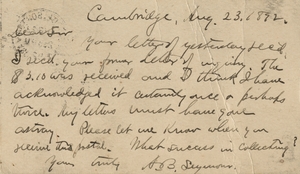 Cambridge, Aug. 23, 1892.
Dear Sir,
Your letter of yesterday rec'd.
I rec'd your former letter of inquiry. The
$3.10 was received and I think I have
acknowledged it certainly once or perhaps
twice. My letters must have gone
astray. Please let me know when you
receive this postal. What success in collecting?
Yours truly A. B. Seymour.